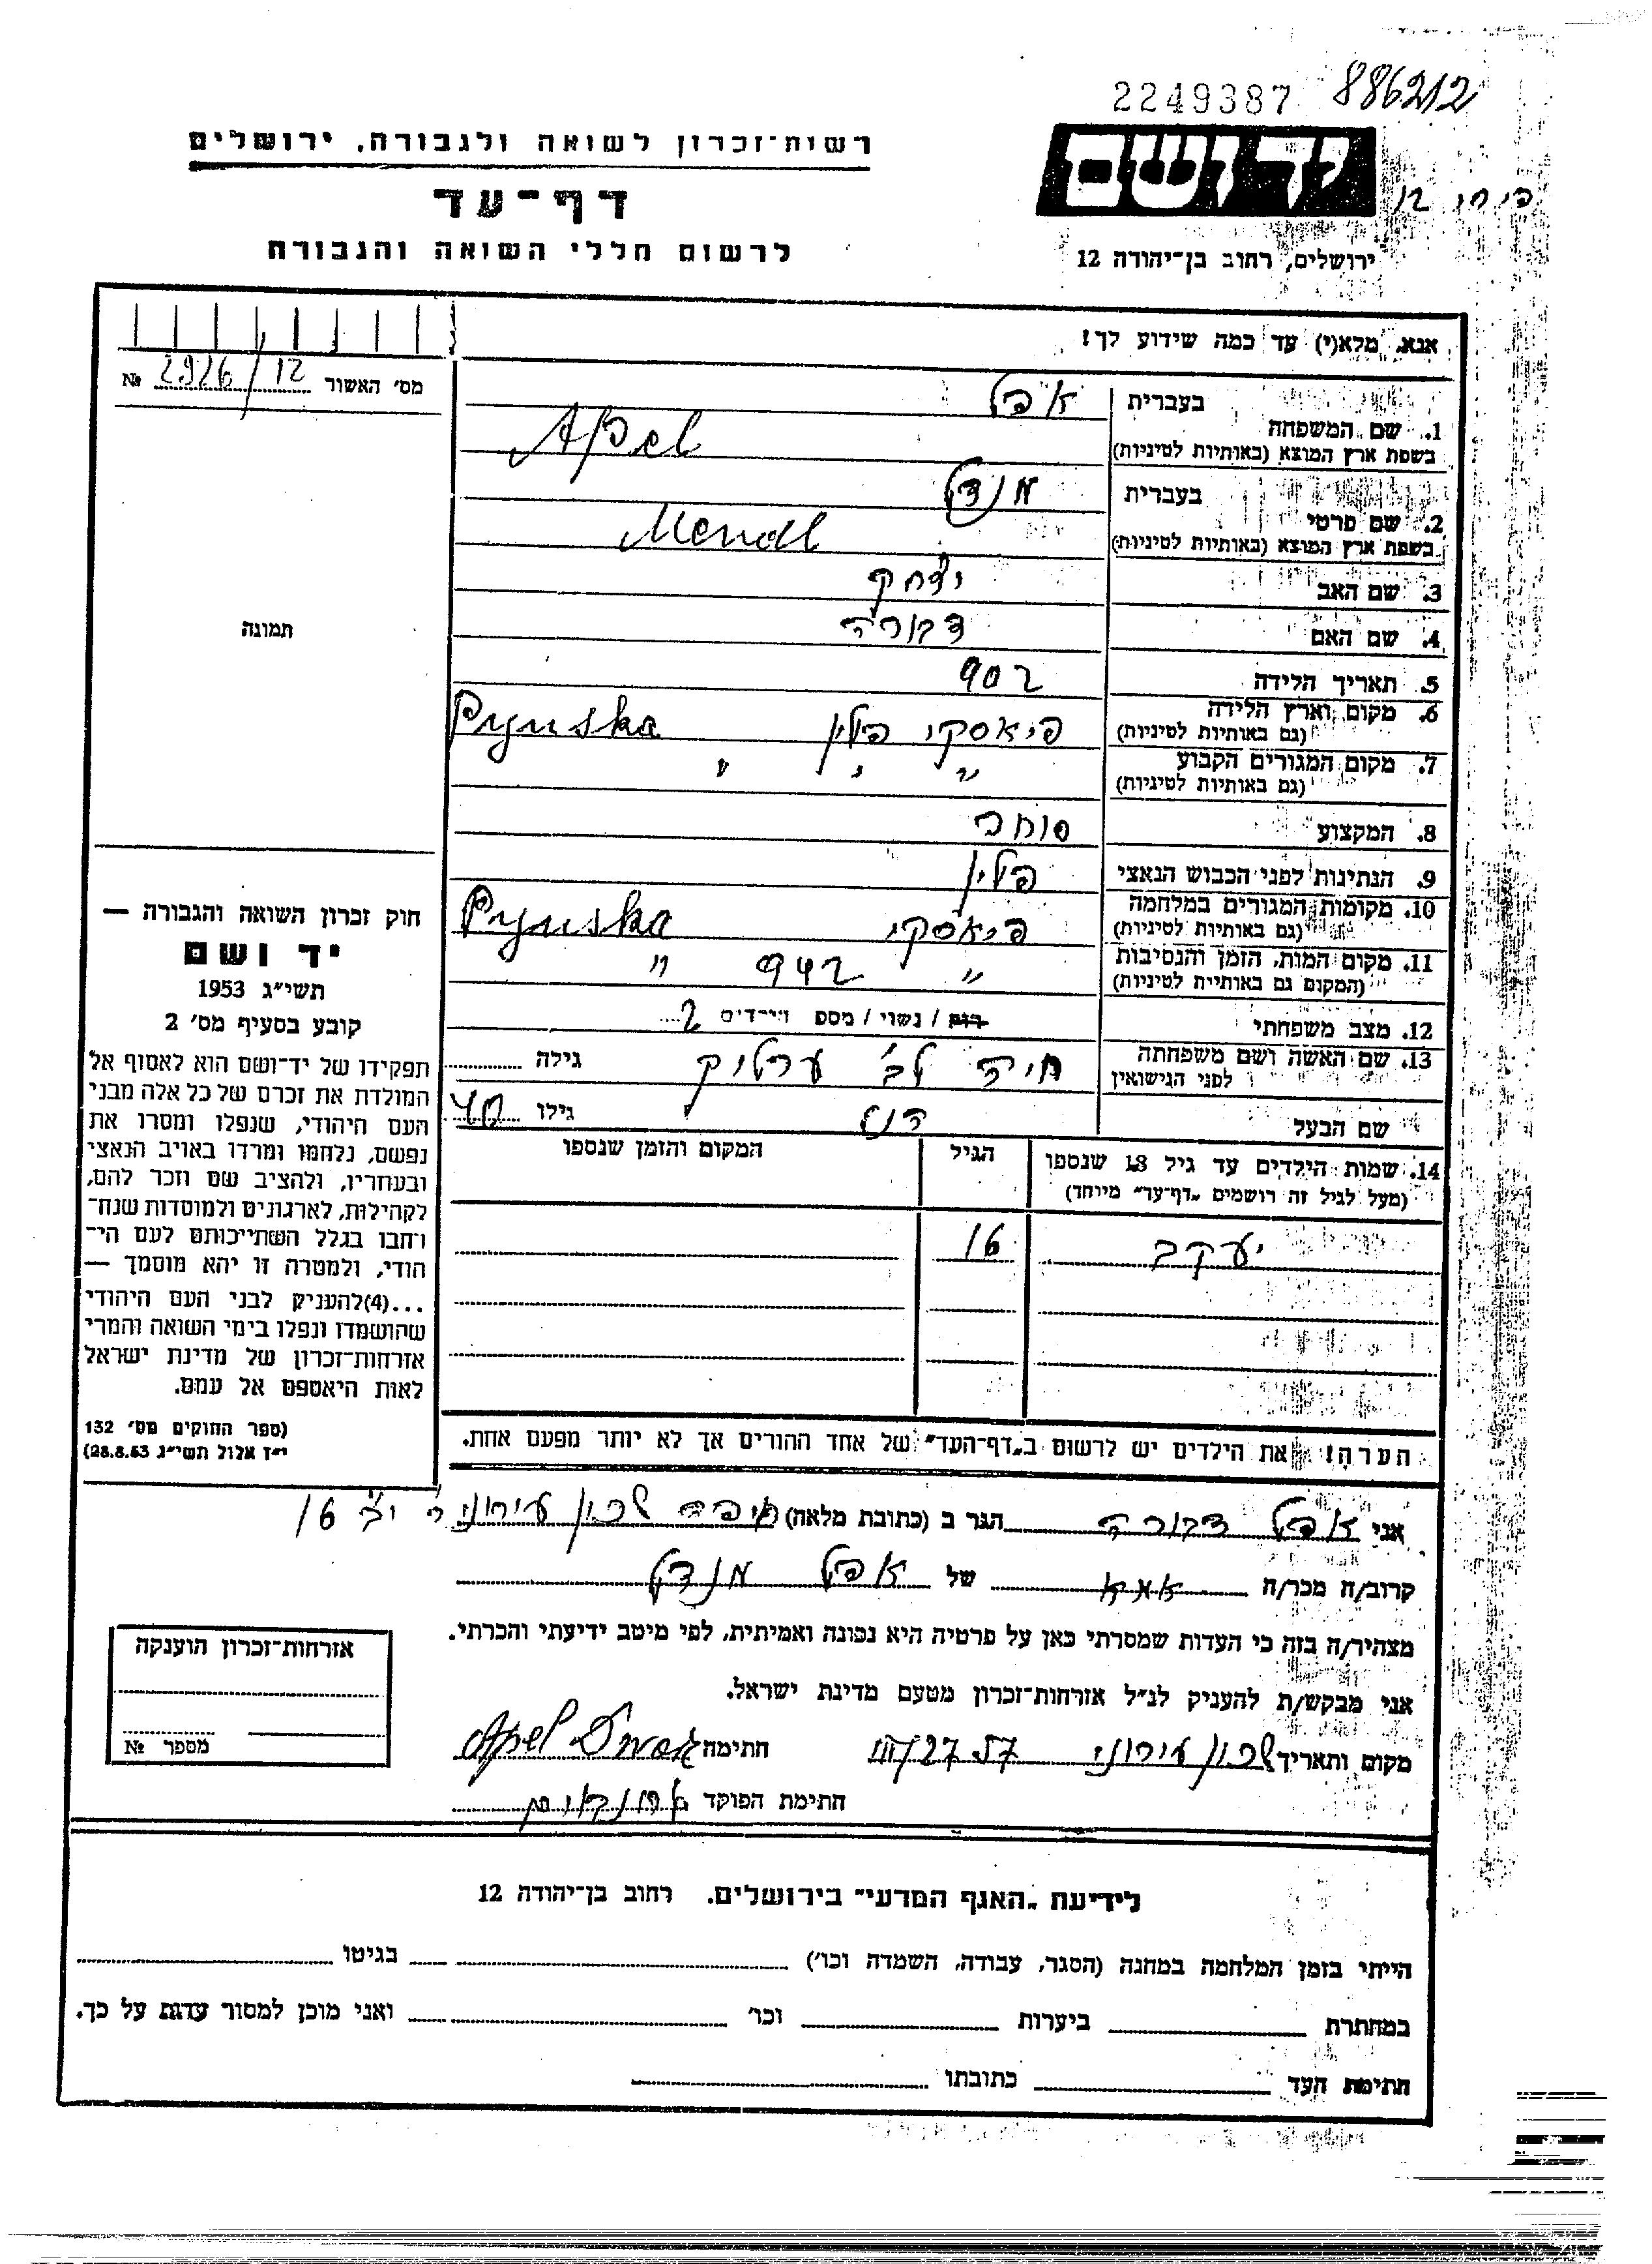 2249387 886212
רשות-זכרון לשואה ולגבורה, ירושלים
יד ושם
דף-עד
לרשום חללי השואה והגבורה
ירושלים, רחוב בן-יהודה 12
אנא, מלא(י) עד כמה שידוע לך!
מס׳ האשור 2926/12 №
1. שם המשפחה
בעברית אפל
בשפת ארץ המוצא (באותיות לטיניות) Apel
2. שם פרטי
בעברית מנדל
בשפת ארץ המוצא (באותיות לטיניות) Mendl
3. שם האב יצחק
4. שם האם דבורה
5. תאריך הלידה 902
6. מקום וארץ הלידה (גם באותיות לטיניות) פיאסקי פולין Pyuska
7. מקום המגורים הקבוע (גם באותיות לטיניות) " " "
8. המקצוע סוחר
9. הנתינות לפני הכבוש הנאצי פולין
10. מקומות המגורים במלחמה (גם באותיות לטיניות) פיאסקי Pyuska
11. מקום המות, הזמן והנסיבות (המקום גם באותיית לטיניות) " 942 "
12. מצב משפחתי רוק / נשוי / מספר ויי־דים 2
13. שם האשה ושם משפחתה לפני הנישואין חיה לב׳ גילה
שם הבעל גילו 40
14. שמות הילדים עד גיל 18 שנספו
(מעל לגיל זה רושמים „דף-עד" מיוחד)
הגיל
המקום והזמן שנספו
יעקב 16
הערה! את הילדים יש לרשום ב„דף-העד" של אחד ההורים אך לא יותר מפעם אחת.
תמונה
חוק זכרון השואה והגבורה —
יד ושם
תשי״ג 1953
קובע בסעיף מס׳ 2
תפקידו של יד-ושם הוא לאסוף אל
המולדת את זכרם של כל אלה מבני
העם היהודי, שנפלו ומסרו את
נפשם, נלחמו ומרדו באויב הנאצי
ובעוזריו, ולהציב שם וזכר להם,
לקהילות, לארגונים ולמוסדות שנח־
רחבו בגלל השתייכותם לעם הי־
הודי, ולמטרה זו יהא מוסמך —
...(4)להעניק לבני העם היהודי
שהושמדו ונפלו בימי השואה והמרי
אזרחות-זכרון של מדינת ישראל
לאות היאספם אל עמם.
(ספר החוקים מס׳ 132
י״ז אלול תשי״ג 28.8.53)
אני אפל דבורה הגר ב (כתובת מלאה) חיפה שכון עירוני 16
קרוב/ה מכר/ה אמא של אפל מנדל
מצהיר/ה בזה כי העדות שמסרתי כאן על פרטיה היא נכונה ואמיתית, לפי מיטב ידיעתי והכרתי.
אני מבקש/ת להעניק לנ״ל אזרחות-זכרון מטעם מדינת ישראל.
מקום ותאריך שכון עירוני 27 57 חתימה Apel
חתימת הפוקד
אזרחות-זכרון הוענקה
מספר №
לידיעת „האגף המדעי" בירושלים, רחוב בן-יהודה 12
הייתי בזמן המלחמה במחנה (הסגר, עבודה, השמדה וכו׳) בגיטו
במחתרת ביערות וכו׳ ואני מוכן למסור עדות על כך.
חתימת העד כתובתו